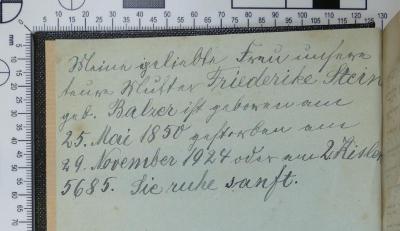 Meine geliebte Frau unsere
teure Mutter Friederike Stern
geb. Balzer ist geboren am
25. Mai 1850 gestorben am
29. November 1924 oder am 2 Kislew
5685. Sie ruhe sanft.